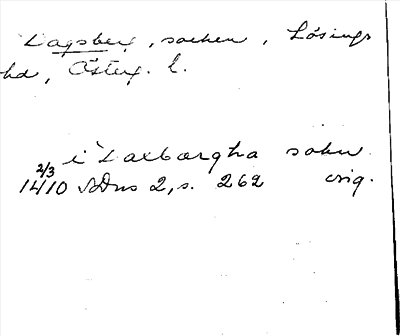 Lagsberg, socken, Lösings
hd, Österg. l.
i Laxbærgha sokn
2/3
1410 SDns 2, s. 262 orig.